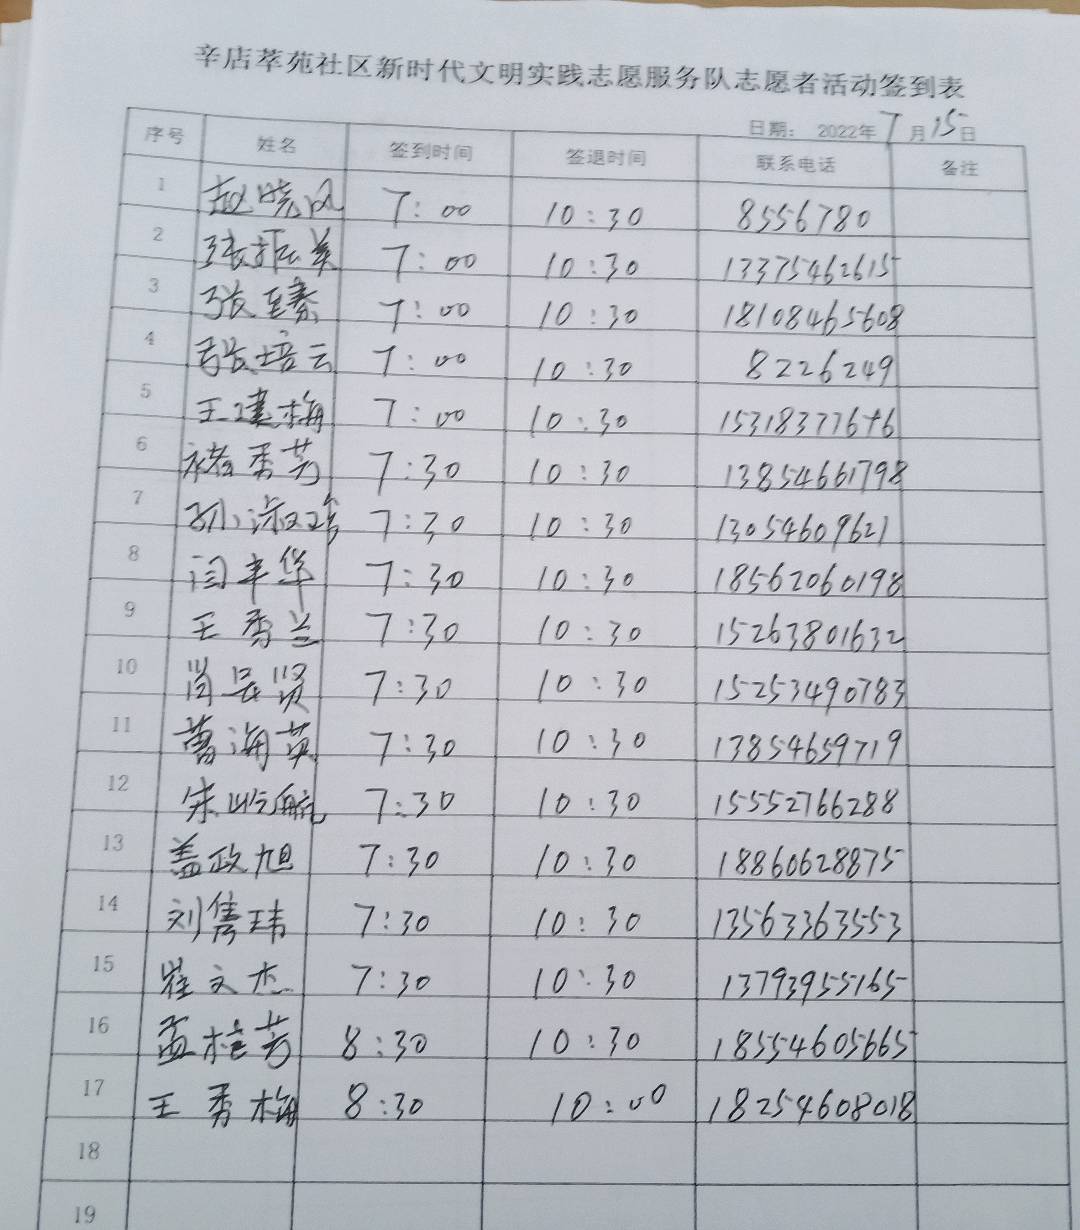 辛店萃苑社区新时代文明实践志愿服务队志愿者活动签到表
日期： 2022年7月15日
序号 姓名 签到时间 签退时间 联系电话 备注
1 赵晓风 7:00 10:30 8556780
2 张振美 7:00 10:30 13375462615
3 张冬春 7:00 10:30 18108465608
4 张培云 7:00 10:30 8226249
5 王建梅 7:00 10:30
6 褚秀芳 7:30 10:30 13854661798
7 孙淑 7:30 10:30 13054609621
8 闫丰华 7:30 10:30 18562060198
9 王秀兰 7:30 10:30 15263801632
10 肖昙贤 7:30 10:30 15253490783
11 曹海英 7:30 10:30 13854659719
12 朱屹航 7:30 10:30 15552766288
13 盖政旭 7:30 10:30 18860628875
14 刘隽玮 7:30 10:30 13563363553
15 崔文杰 7:30 10:30 13793955165
16 孟桂芳 8:30 10:30 18554605665
17 王秀梅 8:30 10:00 18254608018
18
19